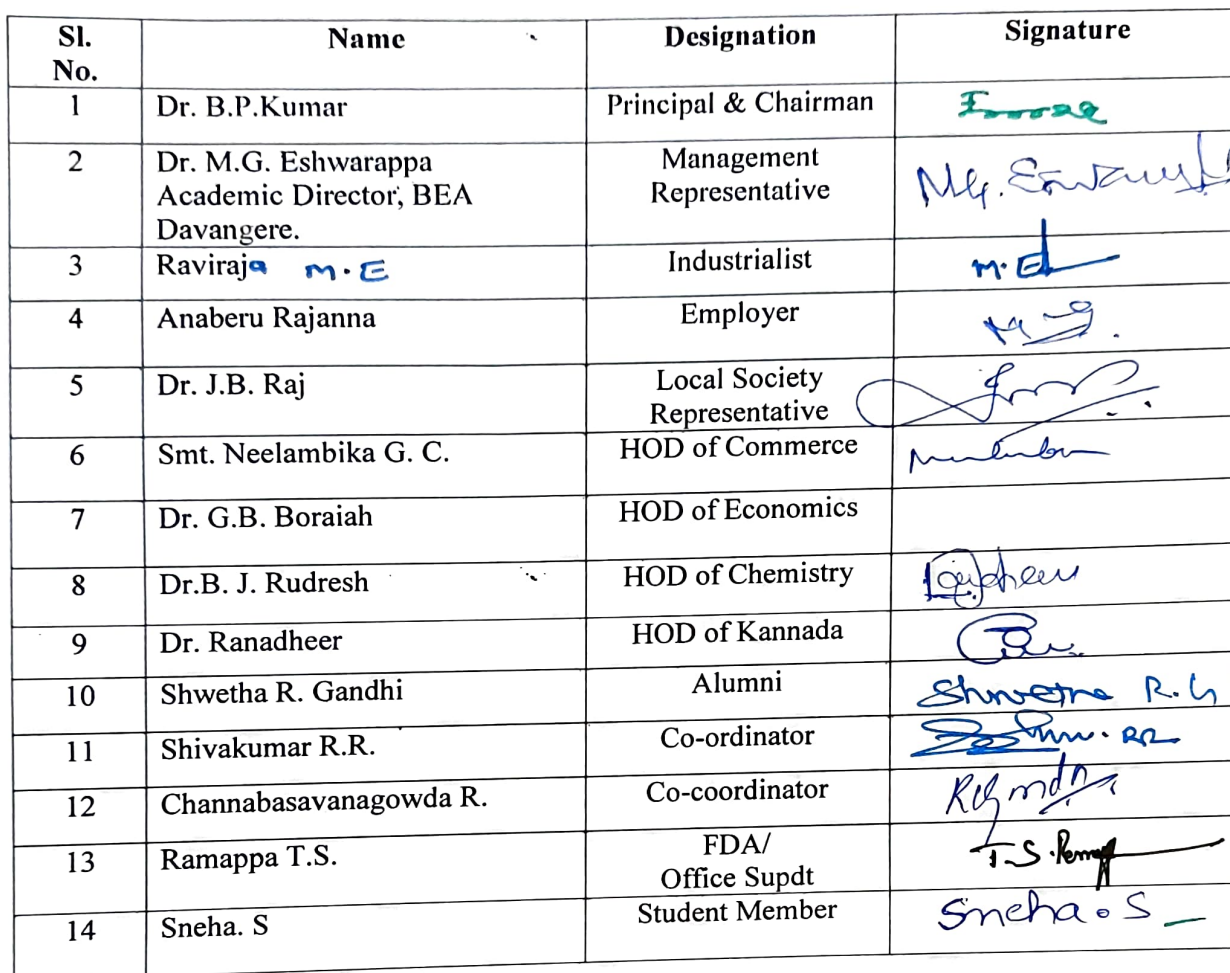 Sl. No. Name Designation Signature
1 Dr. B.P.Kumar Principal & Chairman
2 Dr. M.G. Eshwarappa Management
Academic Director, BEA Representative
Davangere.
3 Raviraja M.E Industrialist M.E
4 Anaberu Rajanna Employer
5 Dr. J.B. Raj Local Society
Representative
6 Smt. Neelambika G. C. HOD of Commerce
7 Dr. G.B. Boraiah HOD of Economics
8 Dr.B. J. Rudresh HOD of Chemistry
9 Dr. Ranadheer HOD of Kannada
10 Shwetha R. Gandhi Alumni Shwetha R.G
11 Shivakumar R.R. Co-ordinator
12 Channabasavanagowda R. Co-coordinator
13 Ramappa T.S. FDA/
Office Supdt
14 Sneha. S Student Member Sneha.S